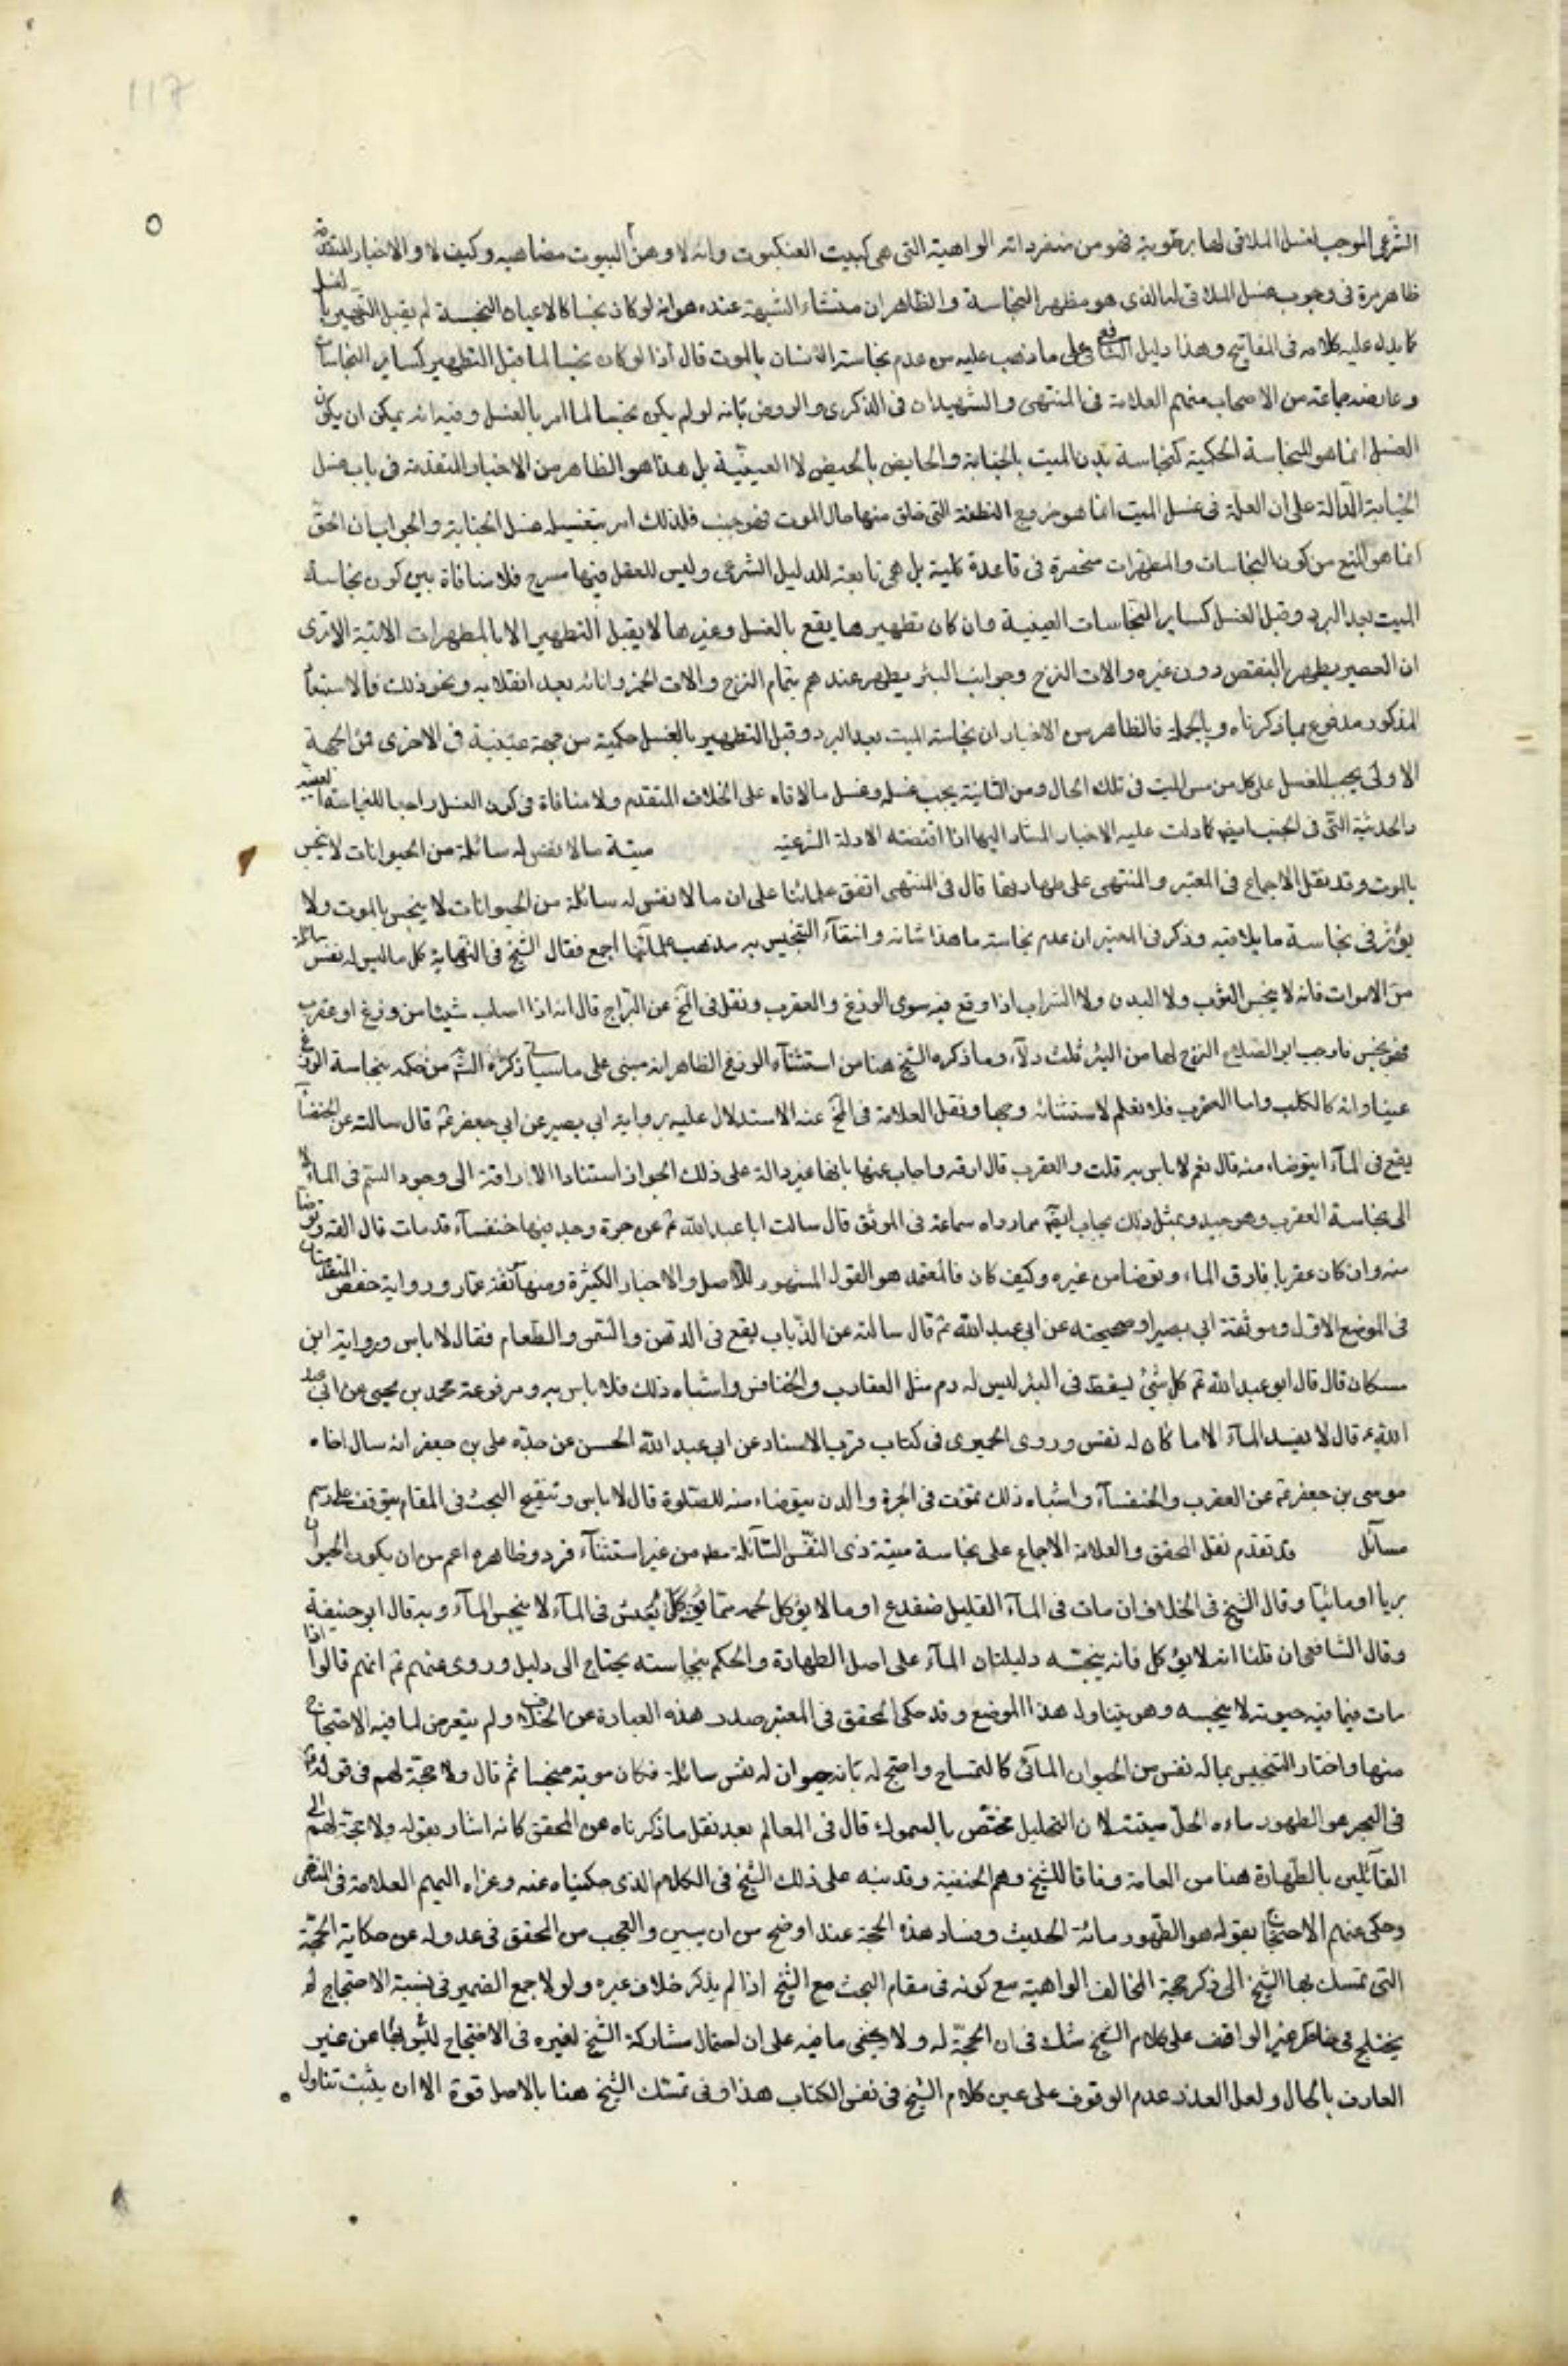 117
الشرعي الموجب لغسل الملاقى لها برطوبة فهو من منفرداته الواهية التى هى كبيت العنكبوت وانه لاوهن البيوت مضاهيه وكيف لا والاخبار المتقدمة
ظاهرة فى وجوب غسل الملاقى لها الذى هو مظهر النجاسة والظاهر ان منشاء الشبهة عنده هو انه لو كان نجسا كالاعيان النجسة لم يقبل التطهير بالغسل
كما يدل عليه كلامه فى المفاتيح وهذا دليل الشافعى على ما ذهب عليه من عدم نجاسة الانسان بالموت قال اذ لو كان نجسا لما قبل التطهير كساير النجاسات
وعارضه جماعة من الاصحاب منهم العلامة فى المنتهى والشهيدان فى الذكرى والروض بانه لو لم يكن نجسا لما امر بالغسل وفيه انه يمكن ان يكون
الغسل انما هو للنجاسة الحكمية كنجاسة بدن الميت بالجنابة والحايض بالحيض لا العينية بل هذا هو الظاهر من الاخبار المتقدمة فى باب غسل
الجنابة الدالة على ان العلة فى غسل الميت انما هو خروج النطفة التى خلق منها حال الموت فهو جنب فلذلك امر بتغسيله غسل الجنابة والجواب ان الحق
انما هو المنع من كون النجاسات والمطهرات منحصرة فى قاعدة كلية بل هى تابعة للدليل الشرعى وليس للعقل فيها مسرح فلا منافاة بين كون نجاسة
الميت بعد البرد وقبل الغسل كساير النجاسات العينية وان كان تطهيرها يقع بالغسل وغيرها لا يقبل التطهير الا بالمطهرات الاتية الا ترى
ان العصير يطهر بالنقص دون غيره والات النزح وجوانب البئر يطهر عندهم بتمام النزح والات الخمر وانائه بعد انقلابه ونحو ذلك فالاستبعاد
المذكور مدفوع بما ذكرناه وبالجملة فالظاهر من الاخبار ان نجاسة الميت بعد البرد وقبل التطهير بالغسل حكمية من جهة عينية فى الاخرى فمن الجهة
الاولى يجب الغسل على كل من مس الميت فى تلك الحال ومن الثانية يجب غسله وغسل ما لاقاه على الخلاف المتقدم ولا منافاة فى كون الغسل واجبا للنجاسة العينية
والحدثية التى فى الجنب ايضا كما دلت عليه الاخبار المشار اليها اذا اقتضته الادلة الشرعية ميتة ما لا نفس له سائلة من الحيوانات لا ينجس
بالموت وقد نقل الاجماع فى المعتبر والمنتهى على طهارتها قال فى المنتهى اتفق علمائنا على ان ما لا نفس له سائلة من الحيوانات لا ينجس بالموت ولا
يؤثر فى نجاسة ما يلاقيه وذكر فى المعتبر ان عدم نجاسة ما هذا شانه وانتفآء التنجيس به مذهب علمآئنا اجمع فقال الشيخ فى النهاية كل ما ليس له نفس سائلة
من الاموات فانه لا ينجس الثوب ولا البدن ولا الشراب اذا وقع فيه سوى الوزغ والعقرب ونقل فى المخ عن البراج قال انه اذا اصاب شيئا من وزغ او عقرب
فهو نجس واوجب ابو الصلاح النزح لها من البئر ثلث دلآء وما ذكره الشيخ هنا من استثنآء الوزغ الظاهر انه مبنى على ما سياتى ذكره انش من حكمه بنجاسة الوزغ
عينا وانه كالكلب واما العقرب فلا نعلم لاستثنائه وجها ونقل العلامة فى المخ عنه الاستدلال عليه برواية ابى بصير عن ابى جعفر ع قال سالته عن الخنفسآء
يقع فى المآء ايتوضاء منه قال نعم لا باس به قلت والعقرب قال ارقه واجاب عنها بانها غير دالة على ذلك لجواز استناد الاراقة الى وجود السم فى المآء لا
الى نجاسة العقرب وهو جيد وبمثل ذلك يجاب ايضا مما رواه سماعة فى الموثق قال سالت ابا عبد الله ع عن جرة وجد فيها خنفسآء قد مات قال القه وتوضا
منه وان كان عقربا فارق الماء وتوضا من غيره وكيف كان فالمعتمد هو القول المشهور للاصل والاخبار الكثيرة ومنها موثقة عمار ورواية حفص المتقدمتان
فى الموضع الاول وموثقة ابى بصير او صحيحته عن ابى عبد الله ع قال سالته عن الذباب يقع فى الدهن والسمن والطعام فقال لا باس ورواية ابن
مسكان قال قال ابو عبد الله ع كل شئ يسقط فى البئر ليس له دم مثل العقارب والخنافس واشباه ذلك فلا باس به ومرفوعة محمد بن يحيى عن ابى عبد
الله ع قال لا يفسد المآء الا ما كان له نفس وروى الحميرى فى كتاب قرب الاسناد عن ابى عبد الله الحسن عن جده على بن جعفر انه سال اخاه
موسى بن جعفر ع عن العقرب والخنفسآء واشباه ذلك تموت فى الجرة والدن يتوضاء منه للصلوة قال لا باس وتنقيح البحث فى المقام يتوقف على رسم
مسآئل قد تقدم نقل المحقق والعلامة الاجماع على نجاسة ميتة ذى النفس السآئلة مط من غير استثنآء فرد وظاهره اعم من ان يكون الحيوان
بريا او مائيا وقال الشيخ فى الخلاف ان مات فى المآء القليل ضفدع او ما لا يؤكل لحمه مما يعيش فى المآء لا ينجس المآء وبه قال ابو حنيفة
وقال الشافعى ان قلنا انه لا يؤكل فانه ينجسه دليلنا ان المآء على اصل الطهارة والحكم بنجاسته يحتاج الى دليل وروى عنهم ع انهم قالوا اذا
مات فيما فيه حيوته لا ينجسه وهو يتناول هذا الموضع وقد حكى المحقق فى المعتبر صدر هذه العبارة عن الخلاف ولم يتعرض لما فيه الاحتجاج
منها واختار التنجيس بما له نفس من الحيوان المآئى كالتمساح واحتج له بانه حيوان له نفس سائلة فكان موته منجسا ثم قال ولا حجة لهم فى قوله ع
فى البحر هو الطهور ماءه الحل ميتته لان التحليل مختص بالسموك قال فى المعالم بعد نقل ما ذكرناه عن المحقق كانه اشار بقوله ولا حجة لهم الى
القآئلين بالطهارة هنا من العامة وفاقا للشيخ وهم الحنفية وقد نبه على ذلك الشيخ فى الكلام الذى حكيناه عنه وعزاه اليهم العلامة فى المنتهى
وحكى عنهم الاحتجاج بقوله هو الطهور مائه الحديث وفساد هذه الحجة عندنا اوضح من ان يبين والعجب من المحقق فى عدوله عن حكاية الحجة
التى تمسك بها الشيخ الى ذكر حجة المخالف الواهية مع كونه فى مقام البحث مع الشيخ اذ لم يذكر خلاف غيره ولو لا جمع الضمير فى نسبة الاحتجاج لم
يختلج فى خاطر غير الواقف على كلام الشيخ شك فى ان الحجة له ولا يخفى ما فيه على ان احتمال مشاركة الشيخ لغيره فى الاحتجاج عن غير
العارف بالحال ولعل العذر عدم الوقوف على عين كلام الشيخ فى نفس الكتاب هذا وفى تمسك الشيخ هنا بالاصل قوة الا ان يثبت تناول